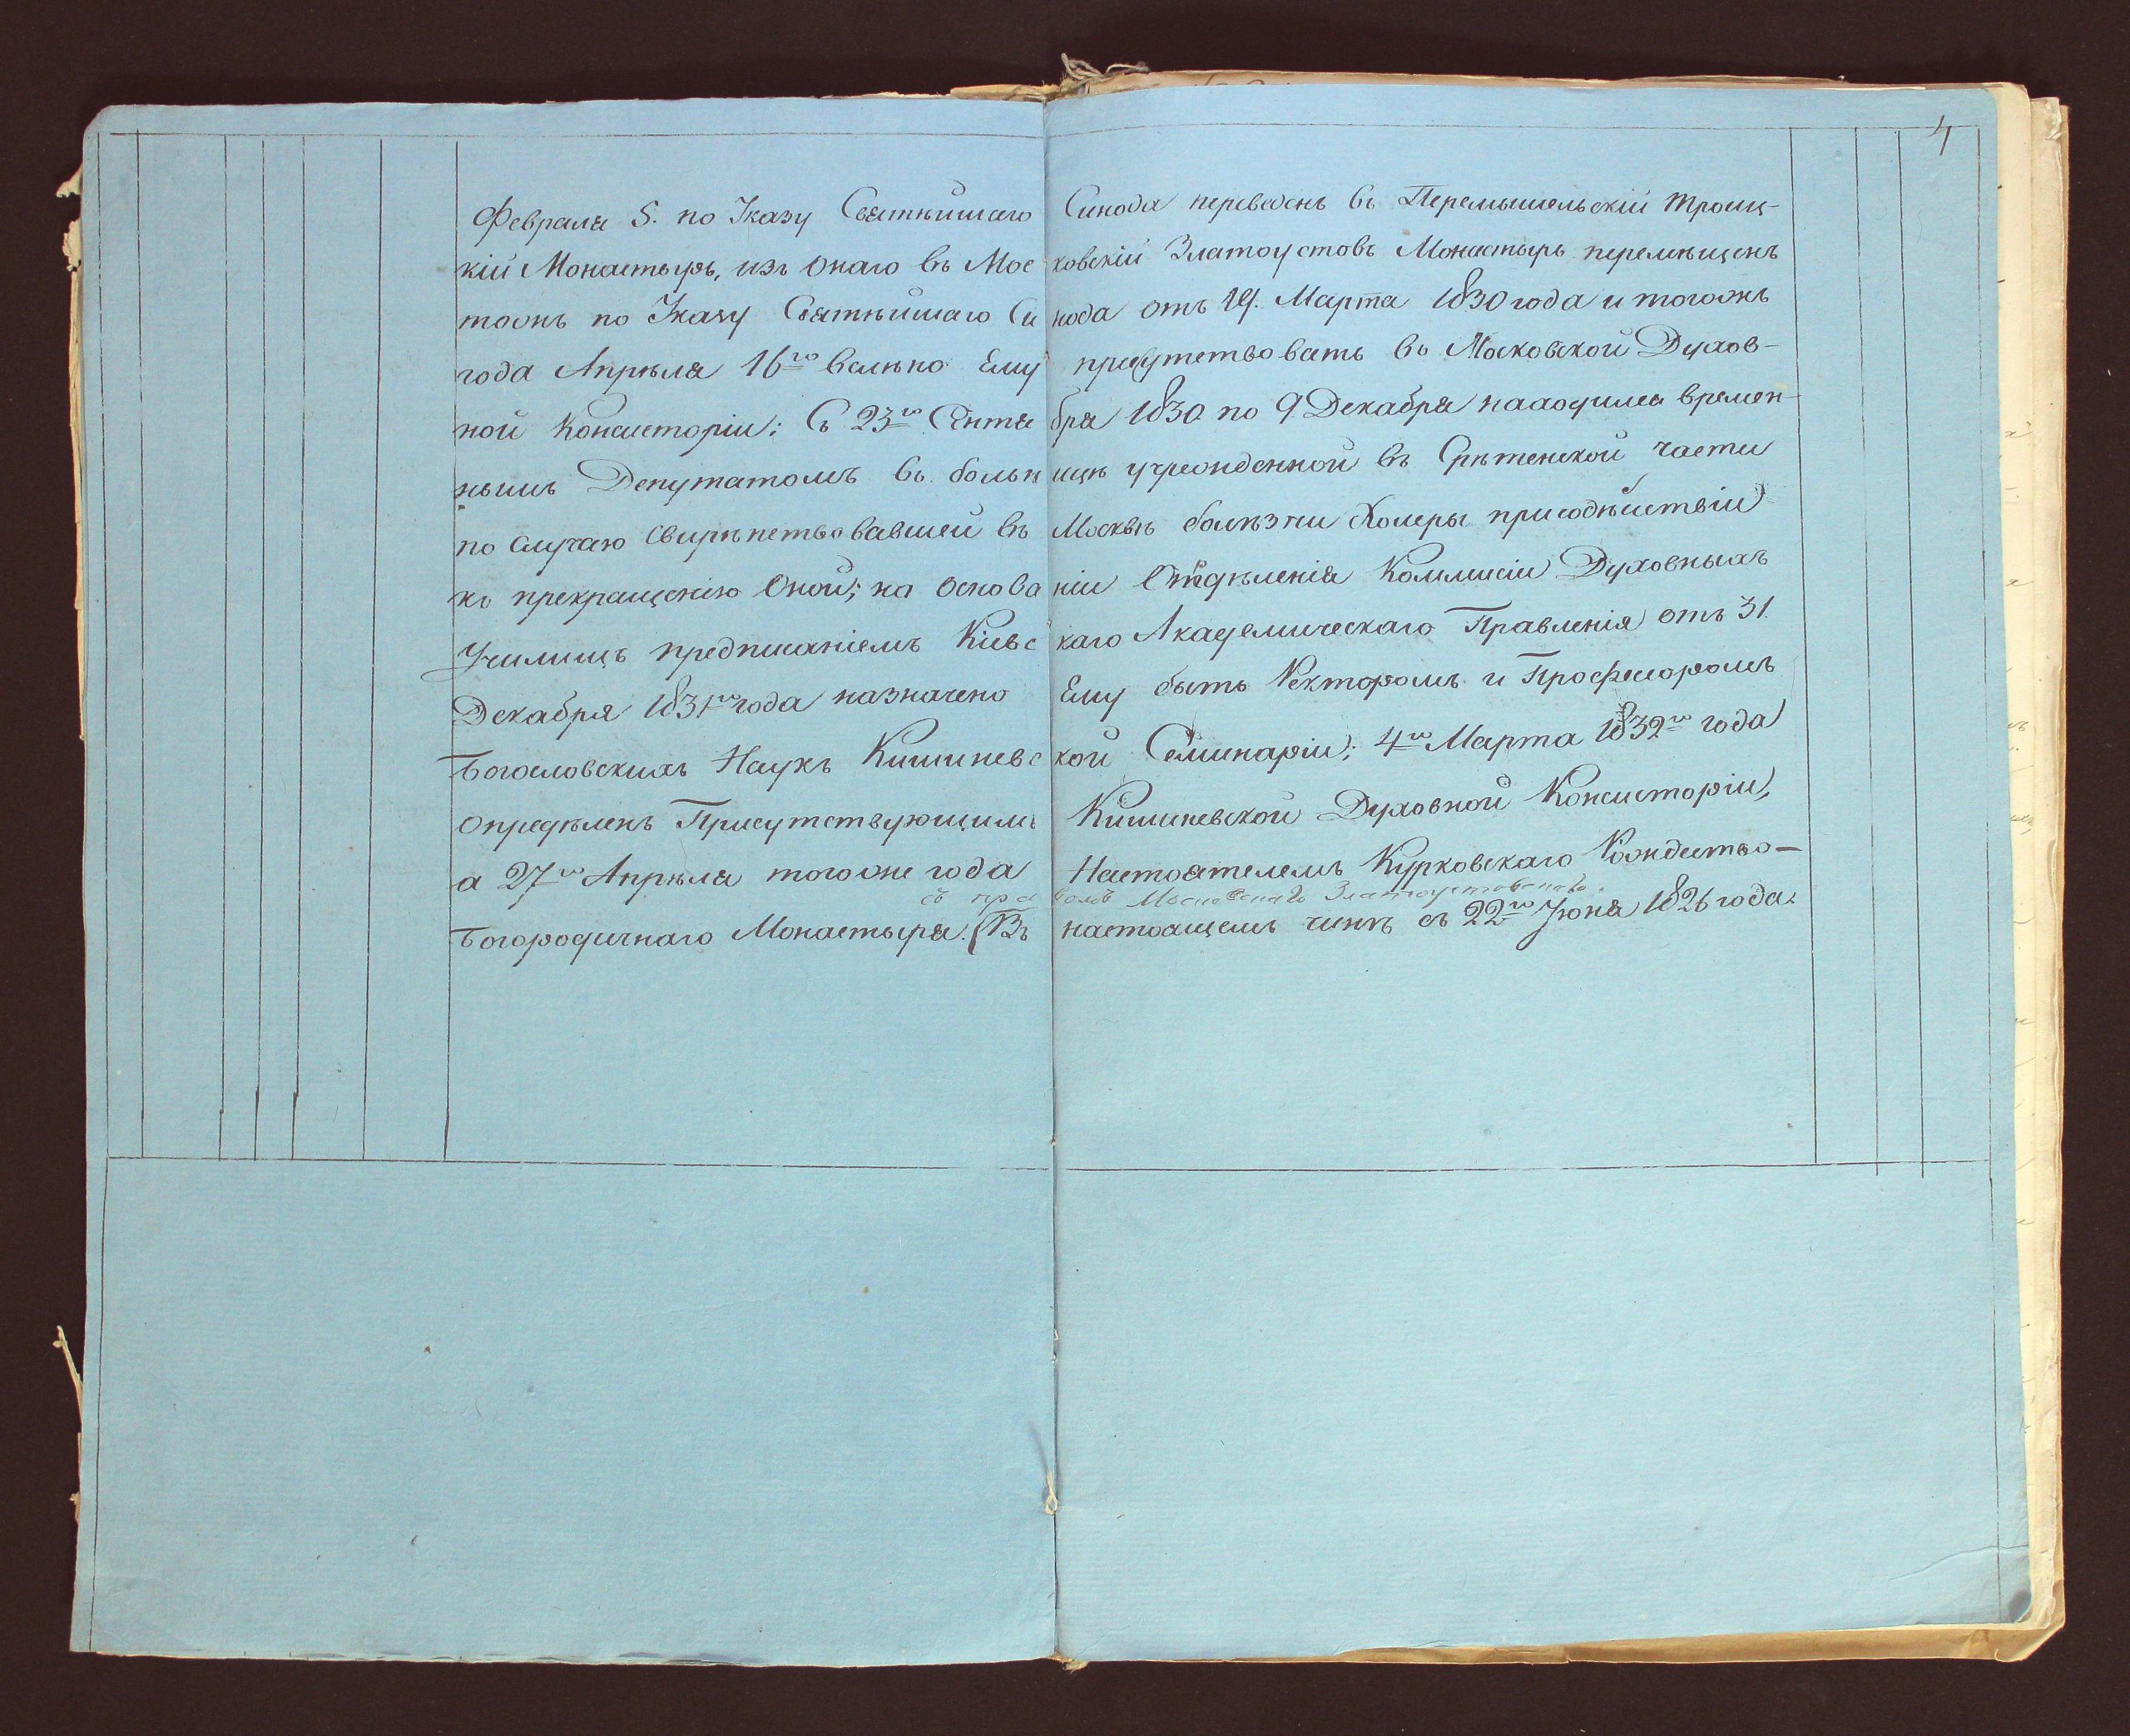 4
Февраля 5. по Указу Святѣйшаго Синода переведенъ въ Перемышельскій Троиц-
кій Монастырь, изъ онаго въ Московскій Златоустовъ Монастырь перемѣщенъ
тоежъ по Указу Святѣйшаго Синода отъ 14. Марта 1830 года и тогожъ
года Апрѣля 16го велѣно Ему присутствовать въ Московской Духов-
ной Консисторіи; Съ 23го Сентября 1830 по 9 Декабря находился времен-
нымъ Депутатомъ въ больницѣ учрежденной въ Срѣтенской части
по случаю свирѣпствовавшей въ Москвѣ болѣзни Холеры при содѣйствіи
къ прекращенію оной; на основаніи Отдѣленія Коммисіи Духовныхъ
Училищъ предписаніемъ Кіевскаго Академическаго Правленія отъ 31.
Декабря 1831го года назначено Ему быть Ректоромъ и Профессоромъ
Богословскихъ Наукъ Кишиневской Семинаріи; 4го Марта 1832го года
опредѣленъ Присутствующимъ Кишиневской Духовной Консисторіи,
а 27го Апрѣля тогоже года Настоятелемъ Курковскаго Рождество-
съ Московскаго Златоустовскаго.
Богородичнаго Монастыря. (Въ настоящемъ чинѣ съ 22го Іюня 1826 года.